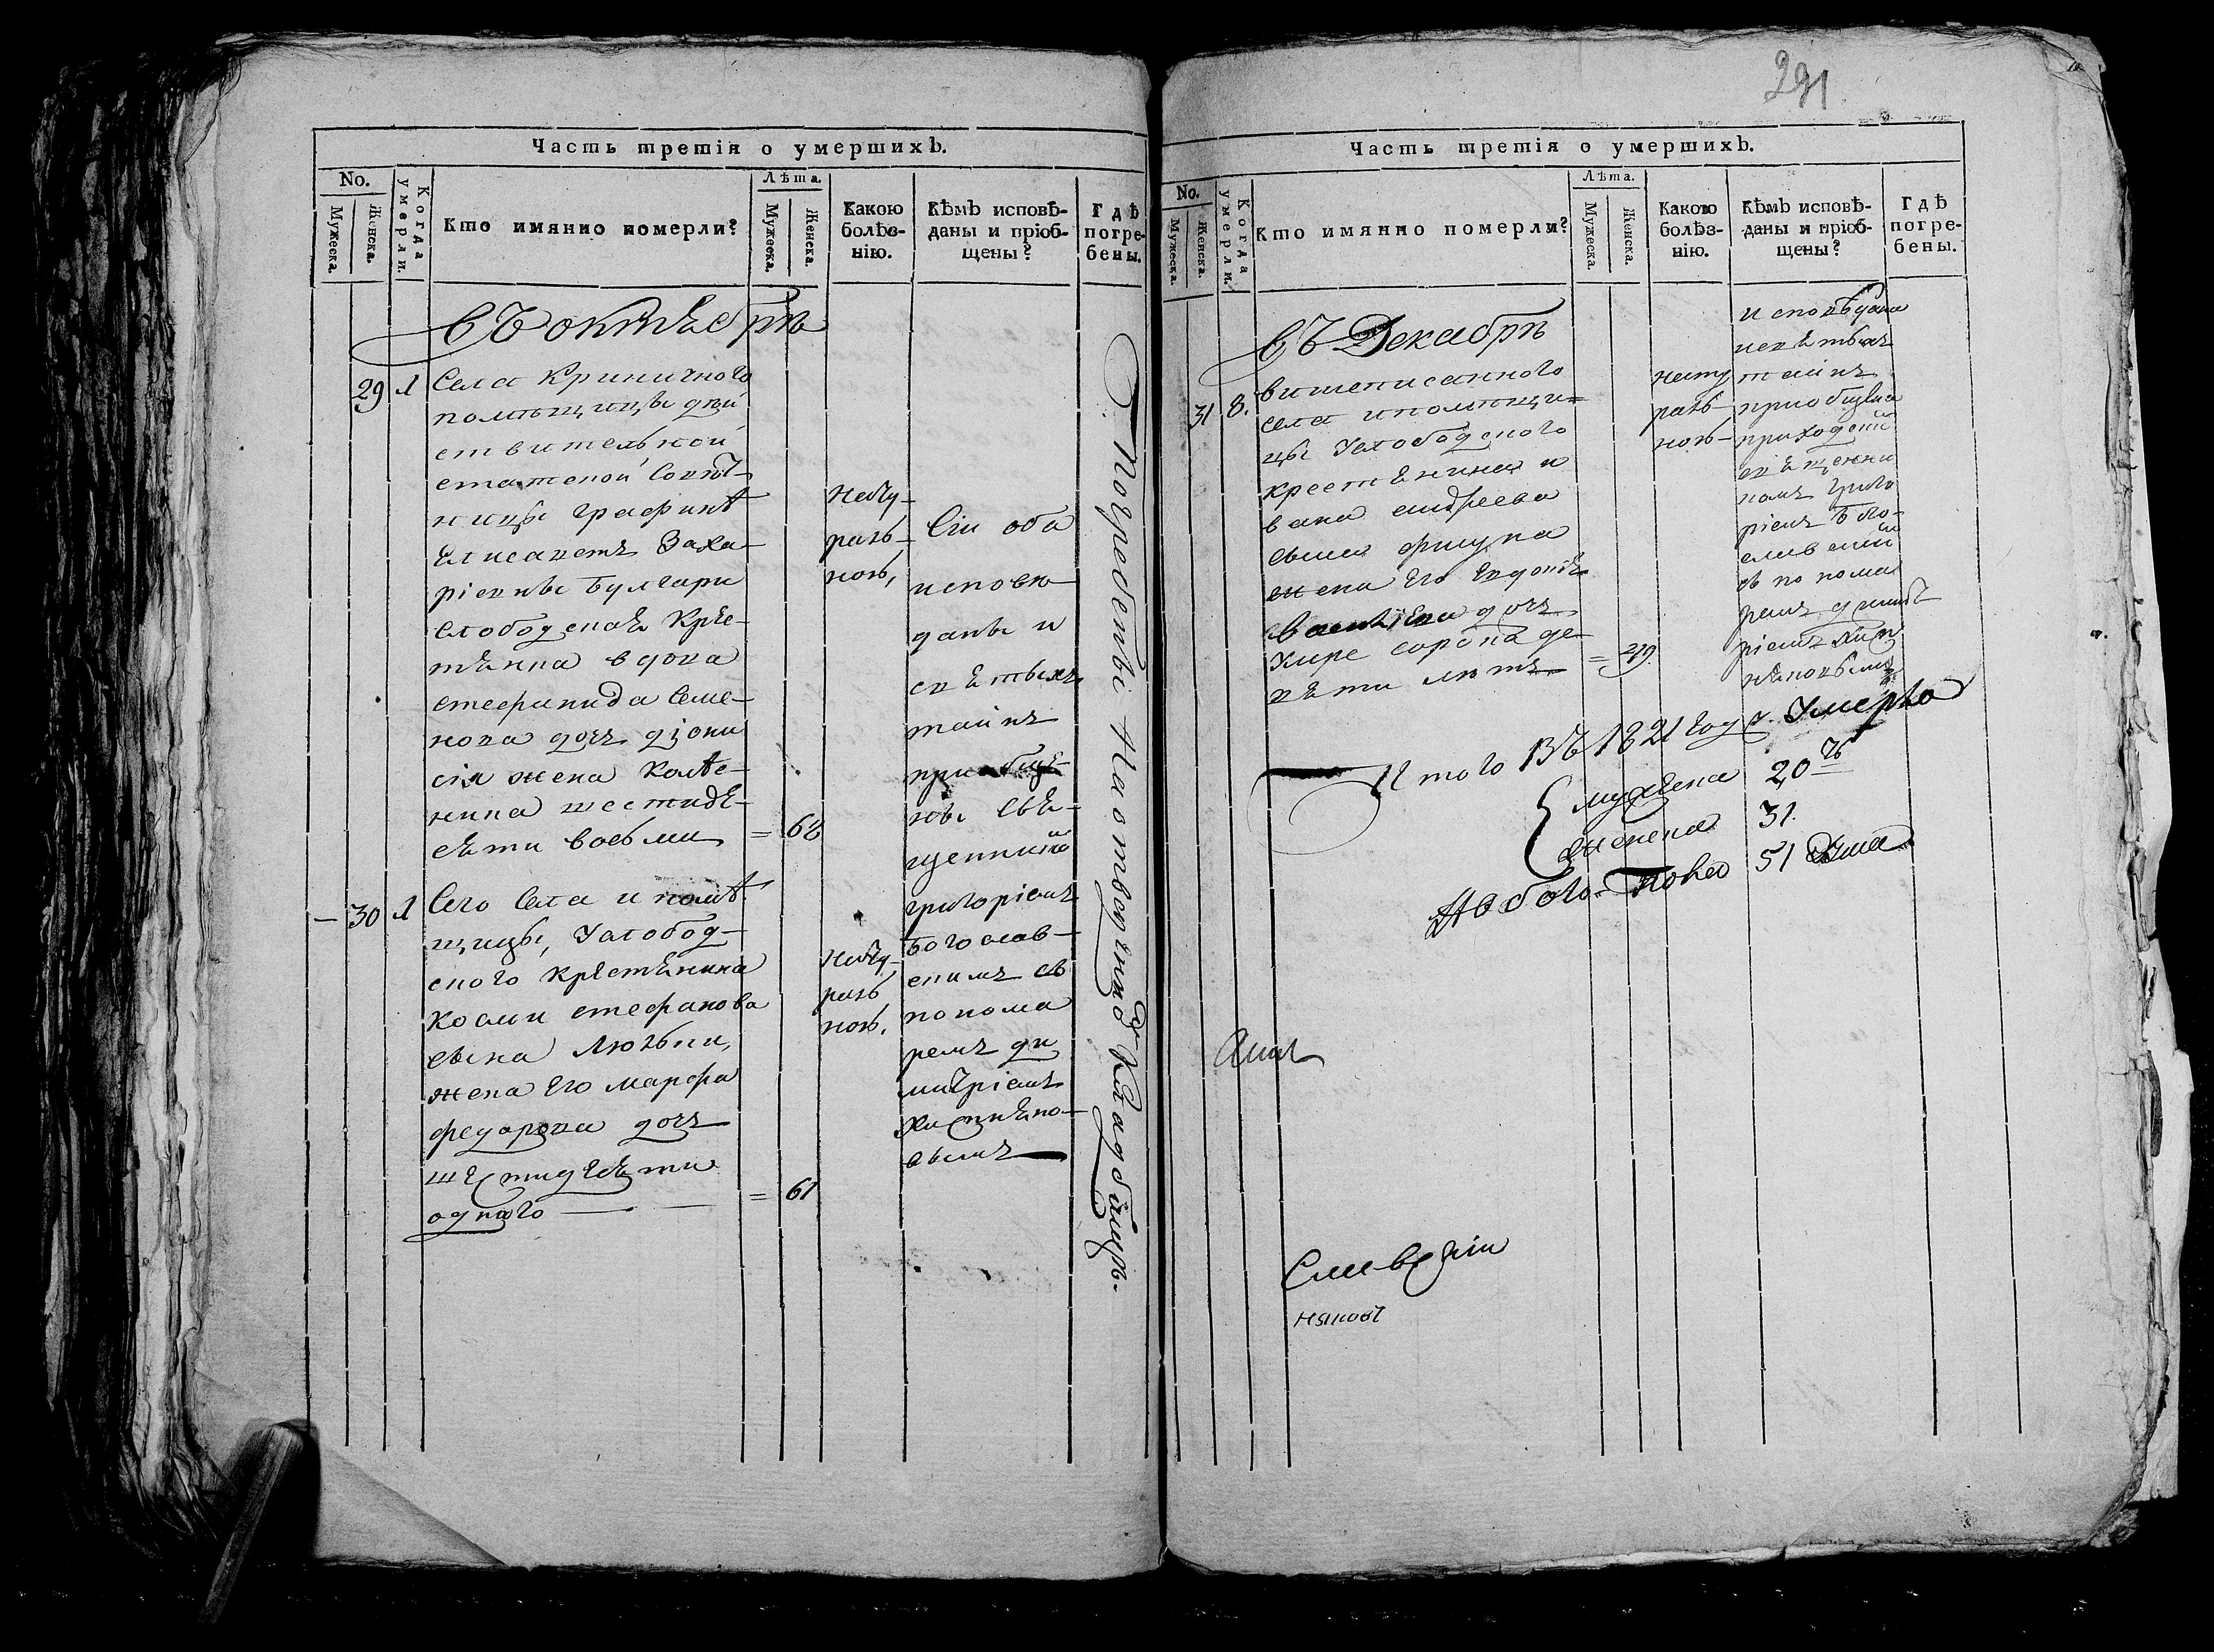 291
Часть третія о умершихъ.
No.
Мужеска.
Женска.
Когда умерли.
Кто имянно померли?
Лѣта.
Мужеска.
Женска.
Какою
болѣз-
нію.
Кѣмъ исповѣ-
даны и пріоб-
щены?
Гдѣ
погре-
бены.
Въ октябрѣ
29
1
Села Криничного
помѣщицы дѣй
ствительной
статской Совѣт
ницы графинѣ
Елисаветъ Заха-
ріевны Булгари
слободская Кре-
тянка вдова
стефанида Семе-
нова дочь діони
сія жена Колѣс-
ника шестиде-
сяти восьми = 68
нату-
раль-
ною,
Сіи оба
исповѣ
даны и
святыхъ
таинъ
приобще-
ны Свя-
щенникомъ
григоріемъ
Богослав-
скимъ съ
понома
ремъ ди
митріемъ
вымъ
— 30
1
Сего Села и помѣ
щицы, Услобод-
ского крестянина
космы стефанова
сына
жена Его марфа
федорова дочь
шестидесяти
одного — = 61
нату-
раль
ною.
Погребены на отведенномъ Кладбищѣ.
Часть третія о умершихъ.
No.
Мужеска.
Женска.
Когда умерли.
Кто имянно померли?
Лѣта.
Мужеска.
Женска.
Какою
болѣз-
нію.
Кѣмъ исповѣ-
даны и пріоб-
щены?
Гдѣ
погре-
бены.
Въ Декабрѣ
31
8.
вишеписанного
села и помѣщи=
цы Услободского
крестянина и
вана андреева
сына
жена Его Евдокія
дочь
сорока де-
вяти лѣтъ = 49.
нату
раль-
ною-
исповѣдана
и святыхъ
таинъ
приобщена
приходскимъ
священни
комъ Григо
ріемъ Бого-
славскимъ
съ понома
ремъ димит
ріемъ
Итого Въ 1821 Году Умерло
мужеска 20ть
женска 31.
Аобоего Пола 51 Душа